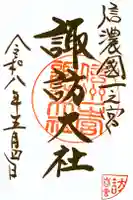 信濃國一之宮
諏訪大社
令和八年五月四日